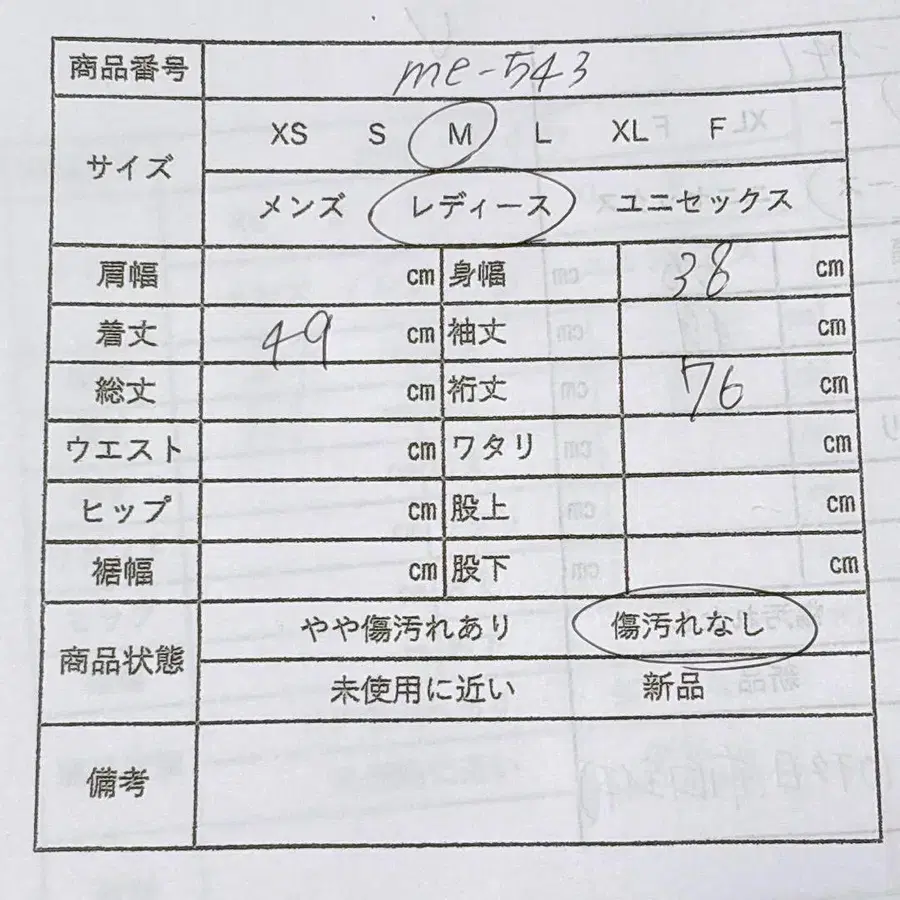 商品番号 me-543
サイズ XS S M L XL F
メンズ レディース ユニセックス
肩幅 cm 身幅 38 cm
着丈 49 cm 袖丈 cm
総丈 cm 裄丈 76 cm
ウエスト cm ワタリ cm
ヒップ cm 股上 cm
裾幅 cm 股下 cm
商品状態 やや傷汚れあり 傷汚れなし
未使用に近い 新品
備考